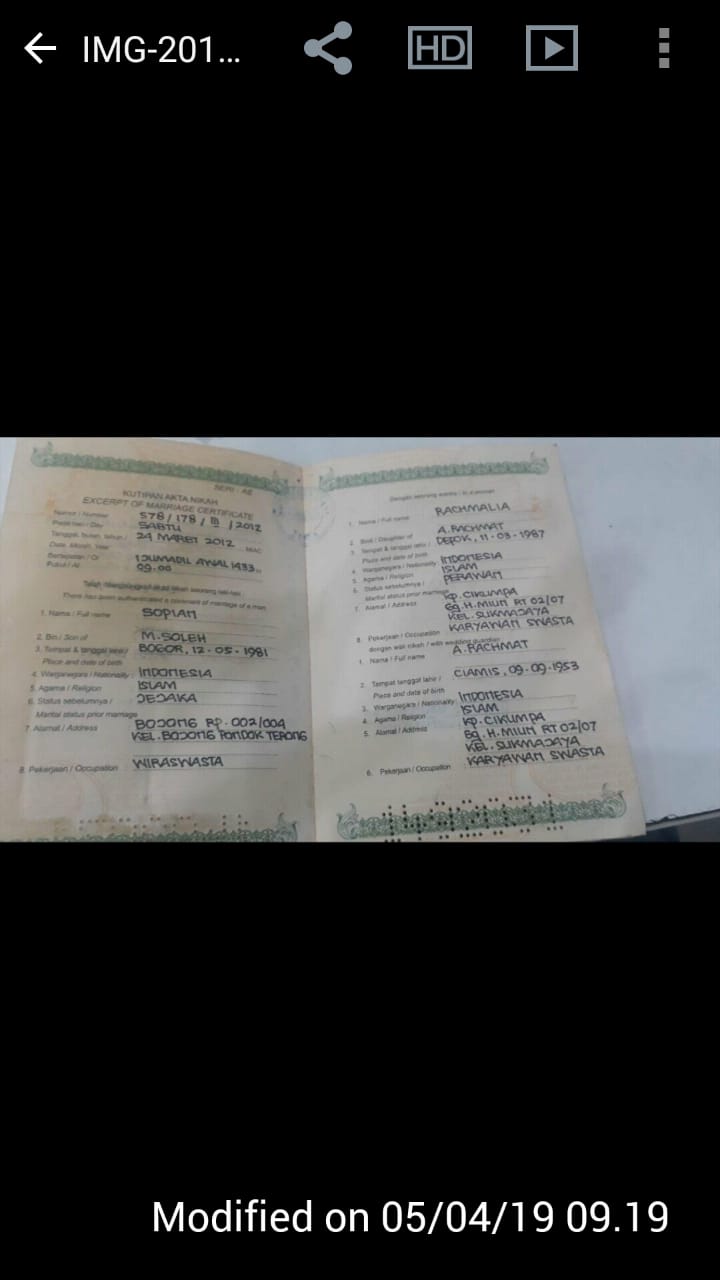 IMG-201...
HD
SERI : AE
KUTIPAN AKTA NIKAH
EXCERPT OF MARRIAGE CERTIFICATE
Nomor / Number 578 / 178 / III / 2012
Pada hari / Day SABTU
Tanggal, bulan, tahun / 24 MARET 2012
Date, Month, Year MIAC
Bertepatan / Or 1 JUMADIL AWAL 1433
Pukul / At 09.00
Telah dilangsungkan akad nikah seorang laki-laki :
There has been authenticated a covenant of marriage of a man
1. Name / Full name SOPIAN
2. Bin / Son of M. SOLEH
3. Tempat & tanggal lahir / BOGOR, 12 - 05 - 1981
Place and date of birth
4. Warganegara / Nationality INDONESIA
5. Agama / Religion ISLAM
6. Status sebelumnya / JEJAKA
Marital status prior marriage
7. Alamat / Address BOJONG RP. 002/004
KEL. BOJONG PONDOK TERONG
8. Pekerjaan / Occupation WIRASWASTA
Dengan seorang wanita / to a woman
1. Nama / Full name RACHMALIA
2. Binti / Daughter of A. RACHMAT
3. Tempat & tanggal lahir / DEPOK, 11 - 03 - 1987
Place and date of birth
4. Warganegara / Nationality INDONESIA
5. Agama / Religion ISLAM
6. Status sebelumnya / PERAWAN
Marital status prior marriage
7. Alamat / Address KP. CIKUMPA
Gg. H. MIUN RT 02/07
KEL. SUKMAJAYA
8. Pekerjaan / Occupation KARYAWAN SWASTA
dengan wali nikah / with wedding guardian
1. Nama / Full name A. RACHMAT
2. Tempat tanggal lahir / CIAMIS, 09 - 09 - 1953
Place and date of birth
3. Warganegara / Nationality INDONESIA
4. Agama / Religion ISLAM
5. Alamat / Address KP. CIKUMPA
Gg. H. MIUN RT 02/07
KEL. SUKMAJAYA
6. Pekerjaan / Occupation KARYAWAN SWASTA
Modified on 05/04/19 09.19